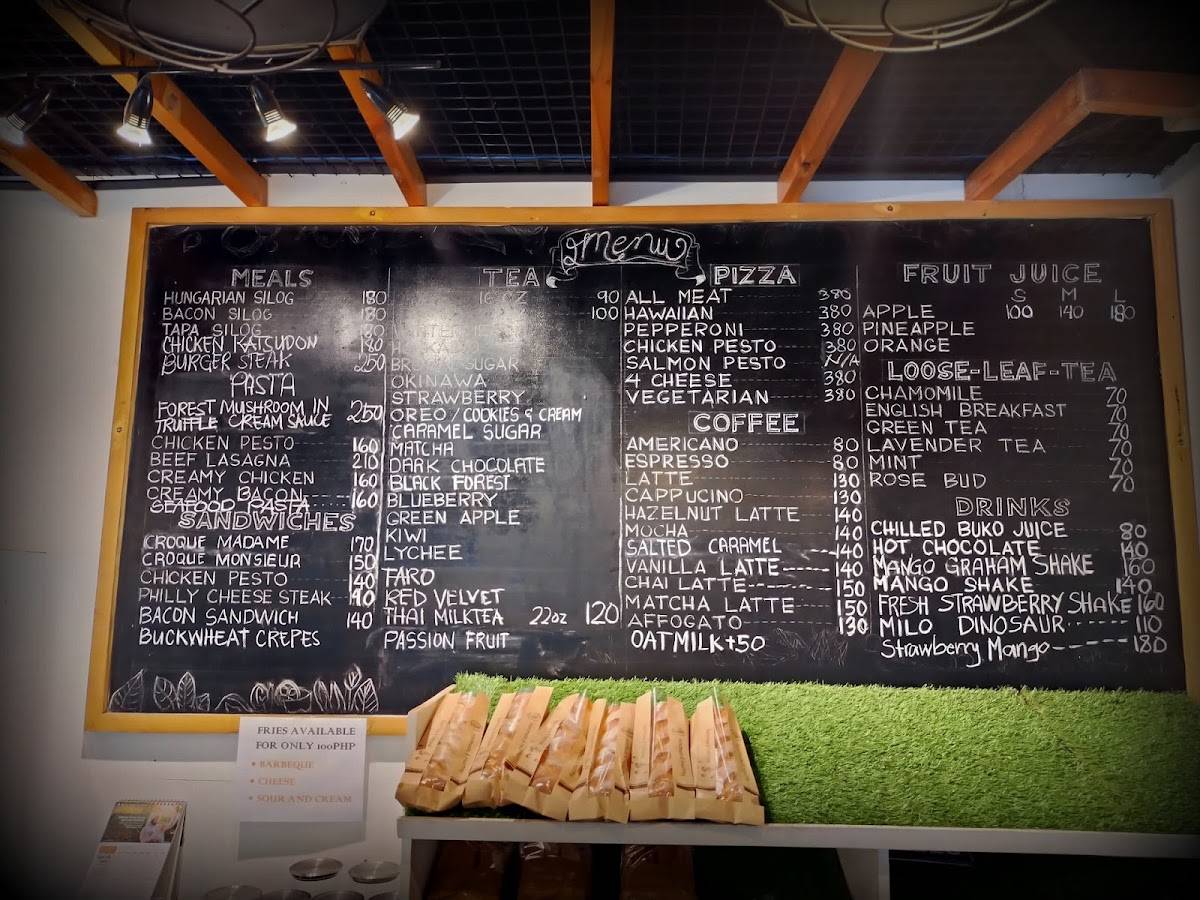 Menu
MEALS
HUNGARIAN SILOG 180
BACON SILOG 180
TAPA SILOG 180
CHICKEN KATSUDON 180
BURGER STEAK 250
PASTA
FOREST MUSHROOM IN
TRUFFLE CREAM SAUCE 250
CHICKEN PESTO 160
BEEF LASAGNA 210
CREAMY CHICKEN 160
CREAMY BACON 160
SEAFOOD PASTA
SANDWICHES
CROQUE MADAME 170
CROQUE MONSIEUR 150
CHICKEN PESTO 140
PHILLY CHEESE STEAK
BACON SANDWICH 140
BUCKWHEAT CREPES
TEA
16 OZ 90
100
SUGAR
OKINAWA
STRAWBERRY
OREO / COOKIES & CREAM
CARAMEL SUGAR
MATCHA
DARK CHOCOLATE
BLACK FOREST
BLUEBERRY
GREEN APPLE
KIWI
LYCHEE
TARO
RED VELVET
THAI MILKTEA 22oz 120
PASSION FRUIT
PIZZA
ALL MEAT 380
HAWAIIAN 380
PEPPERONI 380
CHICKEN PESTO 380
SALMON PESTO N/A
4 CHEESE 380
VEGETARIAN 380
COFFEE
AMERICANO 80
ESPRESSO 80
LATTE 130
CAPPUCINO 130
HAZELNUT LATTE 140
MOCHA 140
SALTED CARAMEL 140
VANILLA LATTE 140
CHAI LATTE 150
MATCHA LATTE 150
AFFOGATO 130
OATMILK +50
FRUIT JUICE
S M L
APPLE 100 140 180
PINEAPPLE
ORANGE
LOOSE-LEAF-TEA
CHAMOMILE 70
ENGLISH BREAKFAST 70
GREEN TEA 70
LAVENDER TEA 70
MINT 70
ROSE BUD 70
DRINKS
CHILLED BUKO JUICE 80
HOT CHOCOLATE 140
MANGO GRAHAM SHAKE 160
MANGO SHAKE 140
FRESH STRAWBERRY SHAKE 160
MILO DINOSAUR 110
Strawberry Mango 180
FRIES AVAILABLE
FOR ONLY 100PHP
• BARBEQUE
• CHEESE
• SOUR AND CREAM